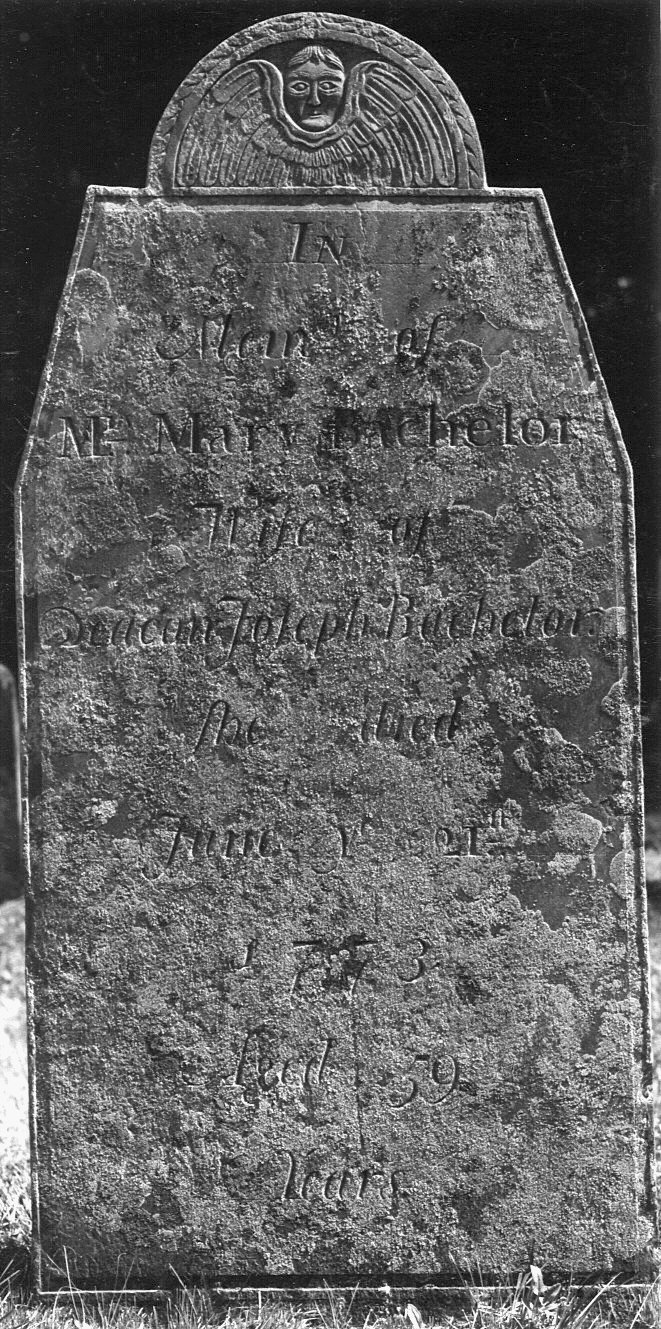 In
Memʳʸ of
Mʳˢ Mary Bachelor
Wife of
Deacan Joſeph Bachelor.
ſhe died
June yᵉ 21ˢᵗ
1773
Aged 59
Years